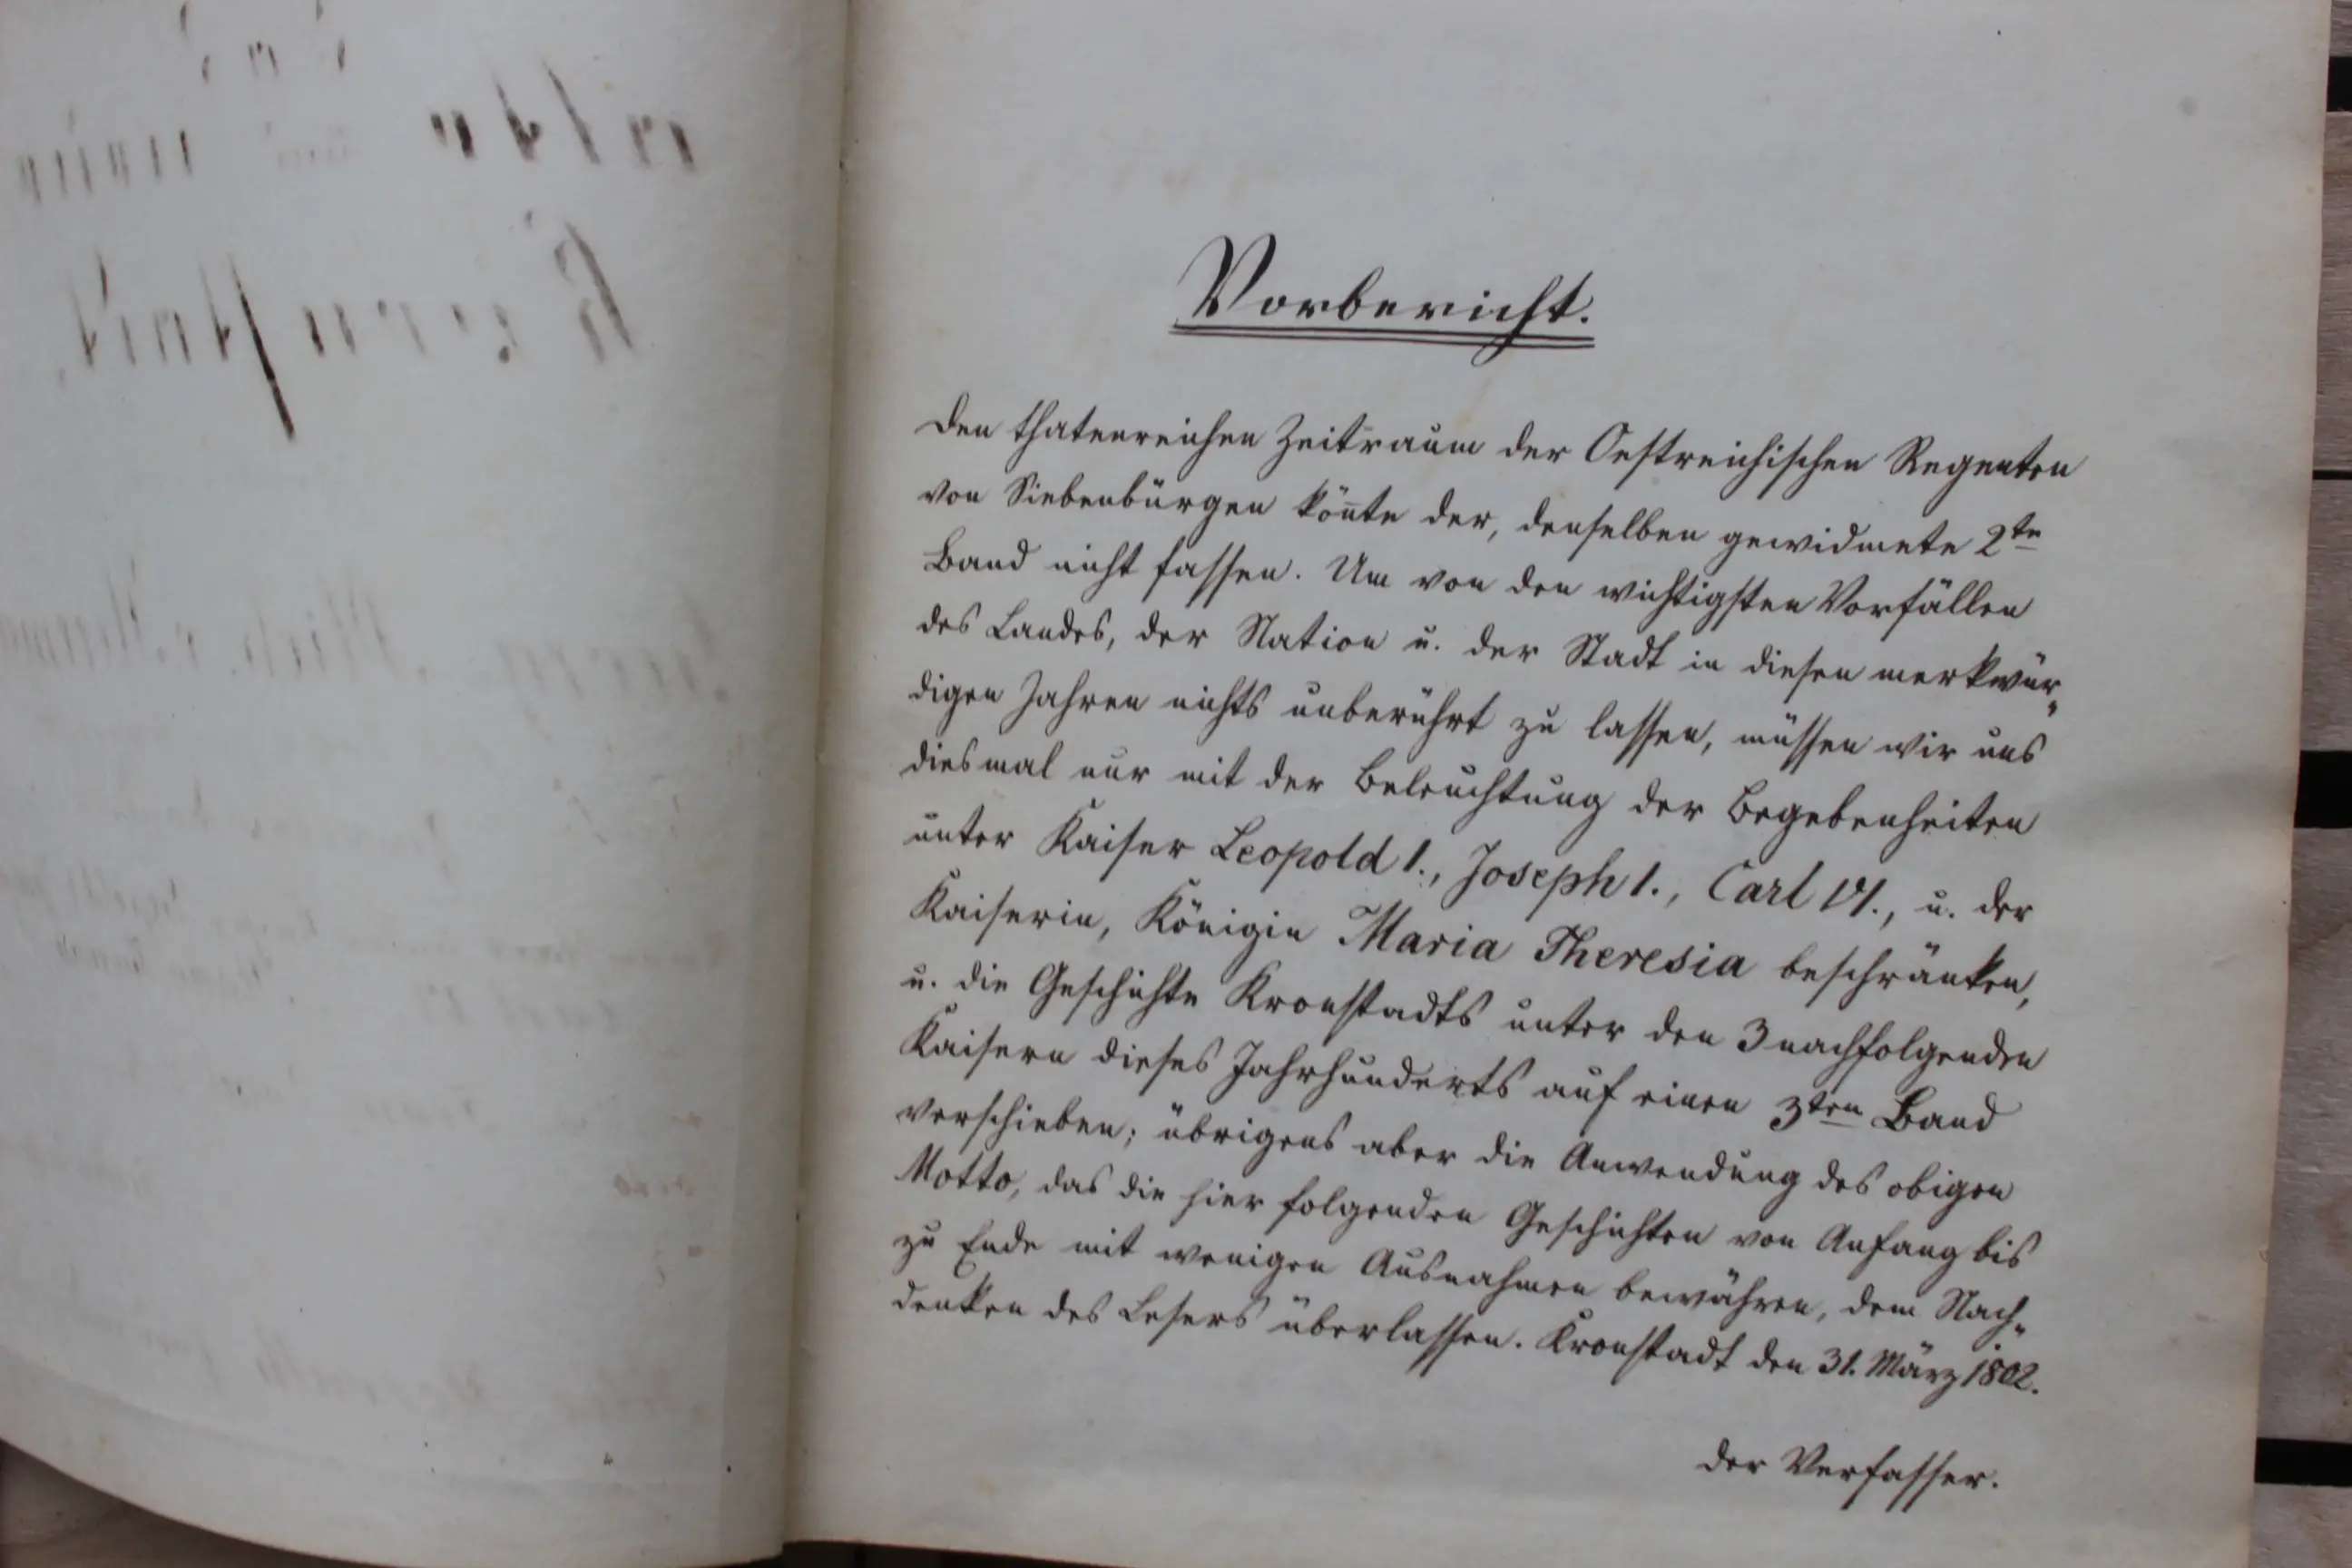 Vorbericht.
Den thatenreichen Zeitraum der Oestreichischen Regenten
von Siebenbürgen kön̄te der, denselben gewidmete 2te
Band nicht fassen. Um von den wichtigsten Vorfällen
des Landes, der Nation u. der Stadt in diesen merkwür„
digen Jahren nichts unberührt zu lassen, müssen wir uns
diesmal nur mit der Beleuchtung der Begebenheiten
unter Kaiser Leopold I., Joseph I., Carl VI., u. der
Kaiserin, Königin Maria Theresia beschränken,
u. die Geschichte Kronstadts unter den 3 nachfolgenden
Kaisern dieses Jahrhunderts auf einen 3ten Band
verschieben; übrigens aber die Anwendung des obigen
Motto, das die hier folgenden Geschichten von Anfang bis
zu Ende mit wenigen Ausnahmen bewähren, dem Nach„
denken des Lesers überlassen. Kronstadt den 31. März 1802.
der Verfasser.